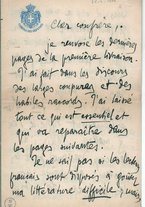 Cher confrère,
je renvoie les dernières
pages de la première livraison.
J'ai fait dans les discours
des larges coupures et des
habiles raccords. J'ai laissé
tout ce qui est essentiel et
qui va reparaître dans
les pages suivantes.
Je ne sais pas si les lecteurs
français sont disposés à goûter
ma littérature difficile; mais